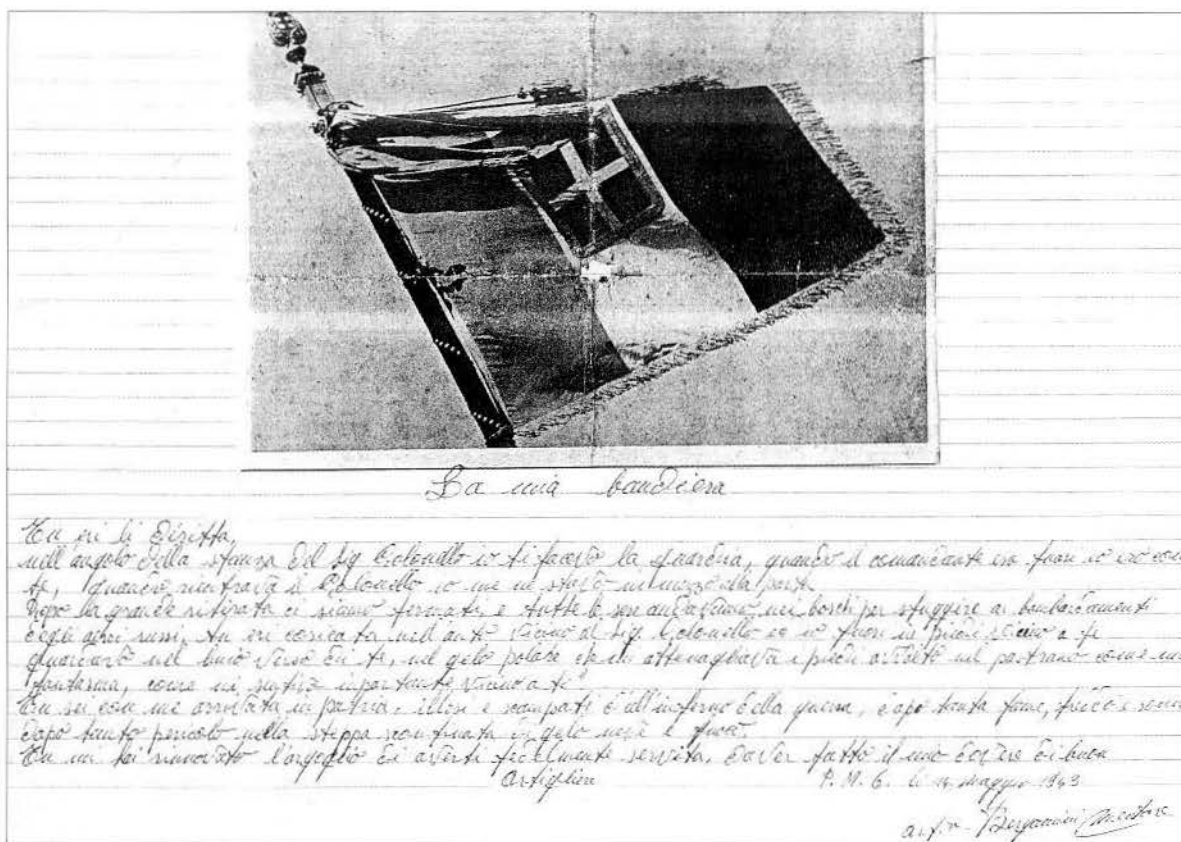 La mia bandiera
Tu eri li diritta,
nell'angolo della stanza del Sig Colonello io ti facevo la guardia, quando il comandante era fuori io ero con
te, quando rientrava il Colonello io me ne stavo in mezzo alla porta
Dopo la grande ritirata ci siamo fermati e tutte le sere andavamo nei boschi per sfuggire ai bombardamenti
degli aerei russi, tu eri coricata nell'auto vicino al Sig. Colonello ed io fuori in piedi vicino a te
guardavo nel buio verso di te, nel gelo polare che mi attanagliava i piedi avvolto nel pastrano come un
fantasma, come mi sentivo importante vicino a te
Tu sei con me arrivata in patria, illesi e scampati dall'inferno della guerra, dopo tanta fame, freddo e sonno
dopo tanto pericolo nella steppa sconfinata di gelo neve e
Tu mi hai rinnovato l'orgoglio di averti fedelmente servita, d'aver fatto il mio dovere di buon
artigliere P. M. 6. li 14 maggio 1943
Bergamini